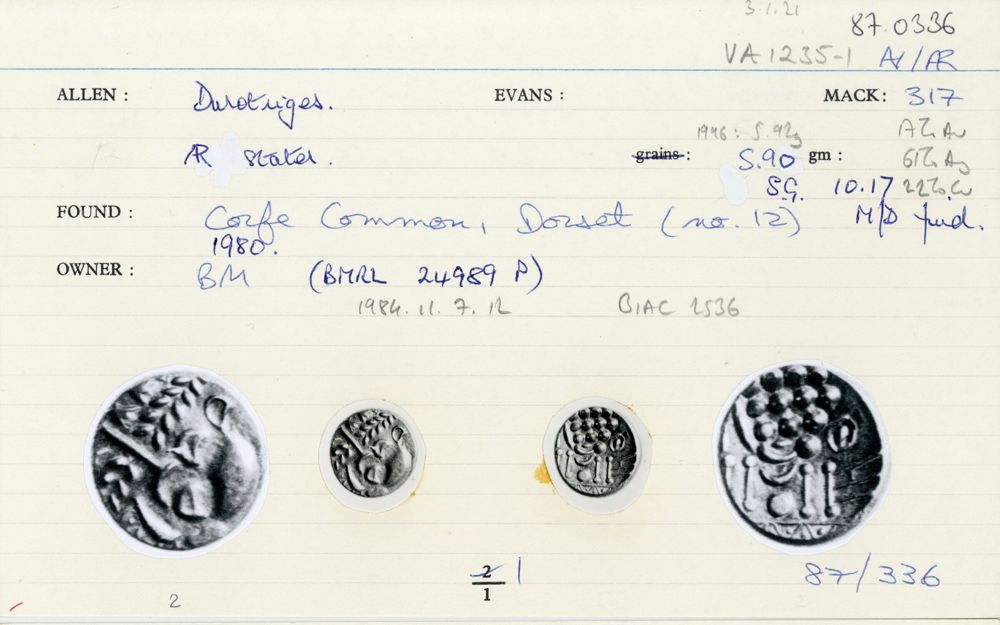 3.1.21
87.0336
VA 1235-1 AV/AR
ALLEN : Durotriges. EVANS : MACK: 317
1996: 5.92g 17% Au
AR stater. grains: 5.90 gm : 61% Ag
S.G. 10.17 22% Cu
FOUND : Corfe Common, Dorset (no. 12) M/D find.
1980.
OWNER : BM (BMRL 24989 P)
1984. 11. 7. 12 BIAC 2536
2/1 1
87/336
2